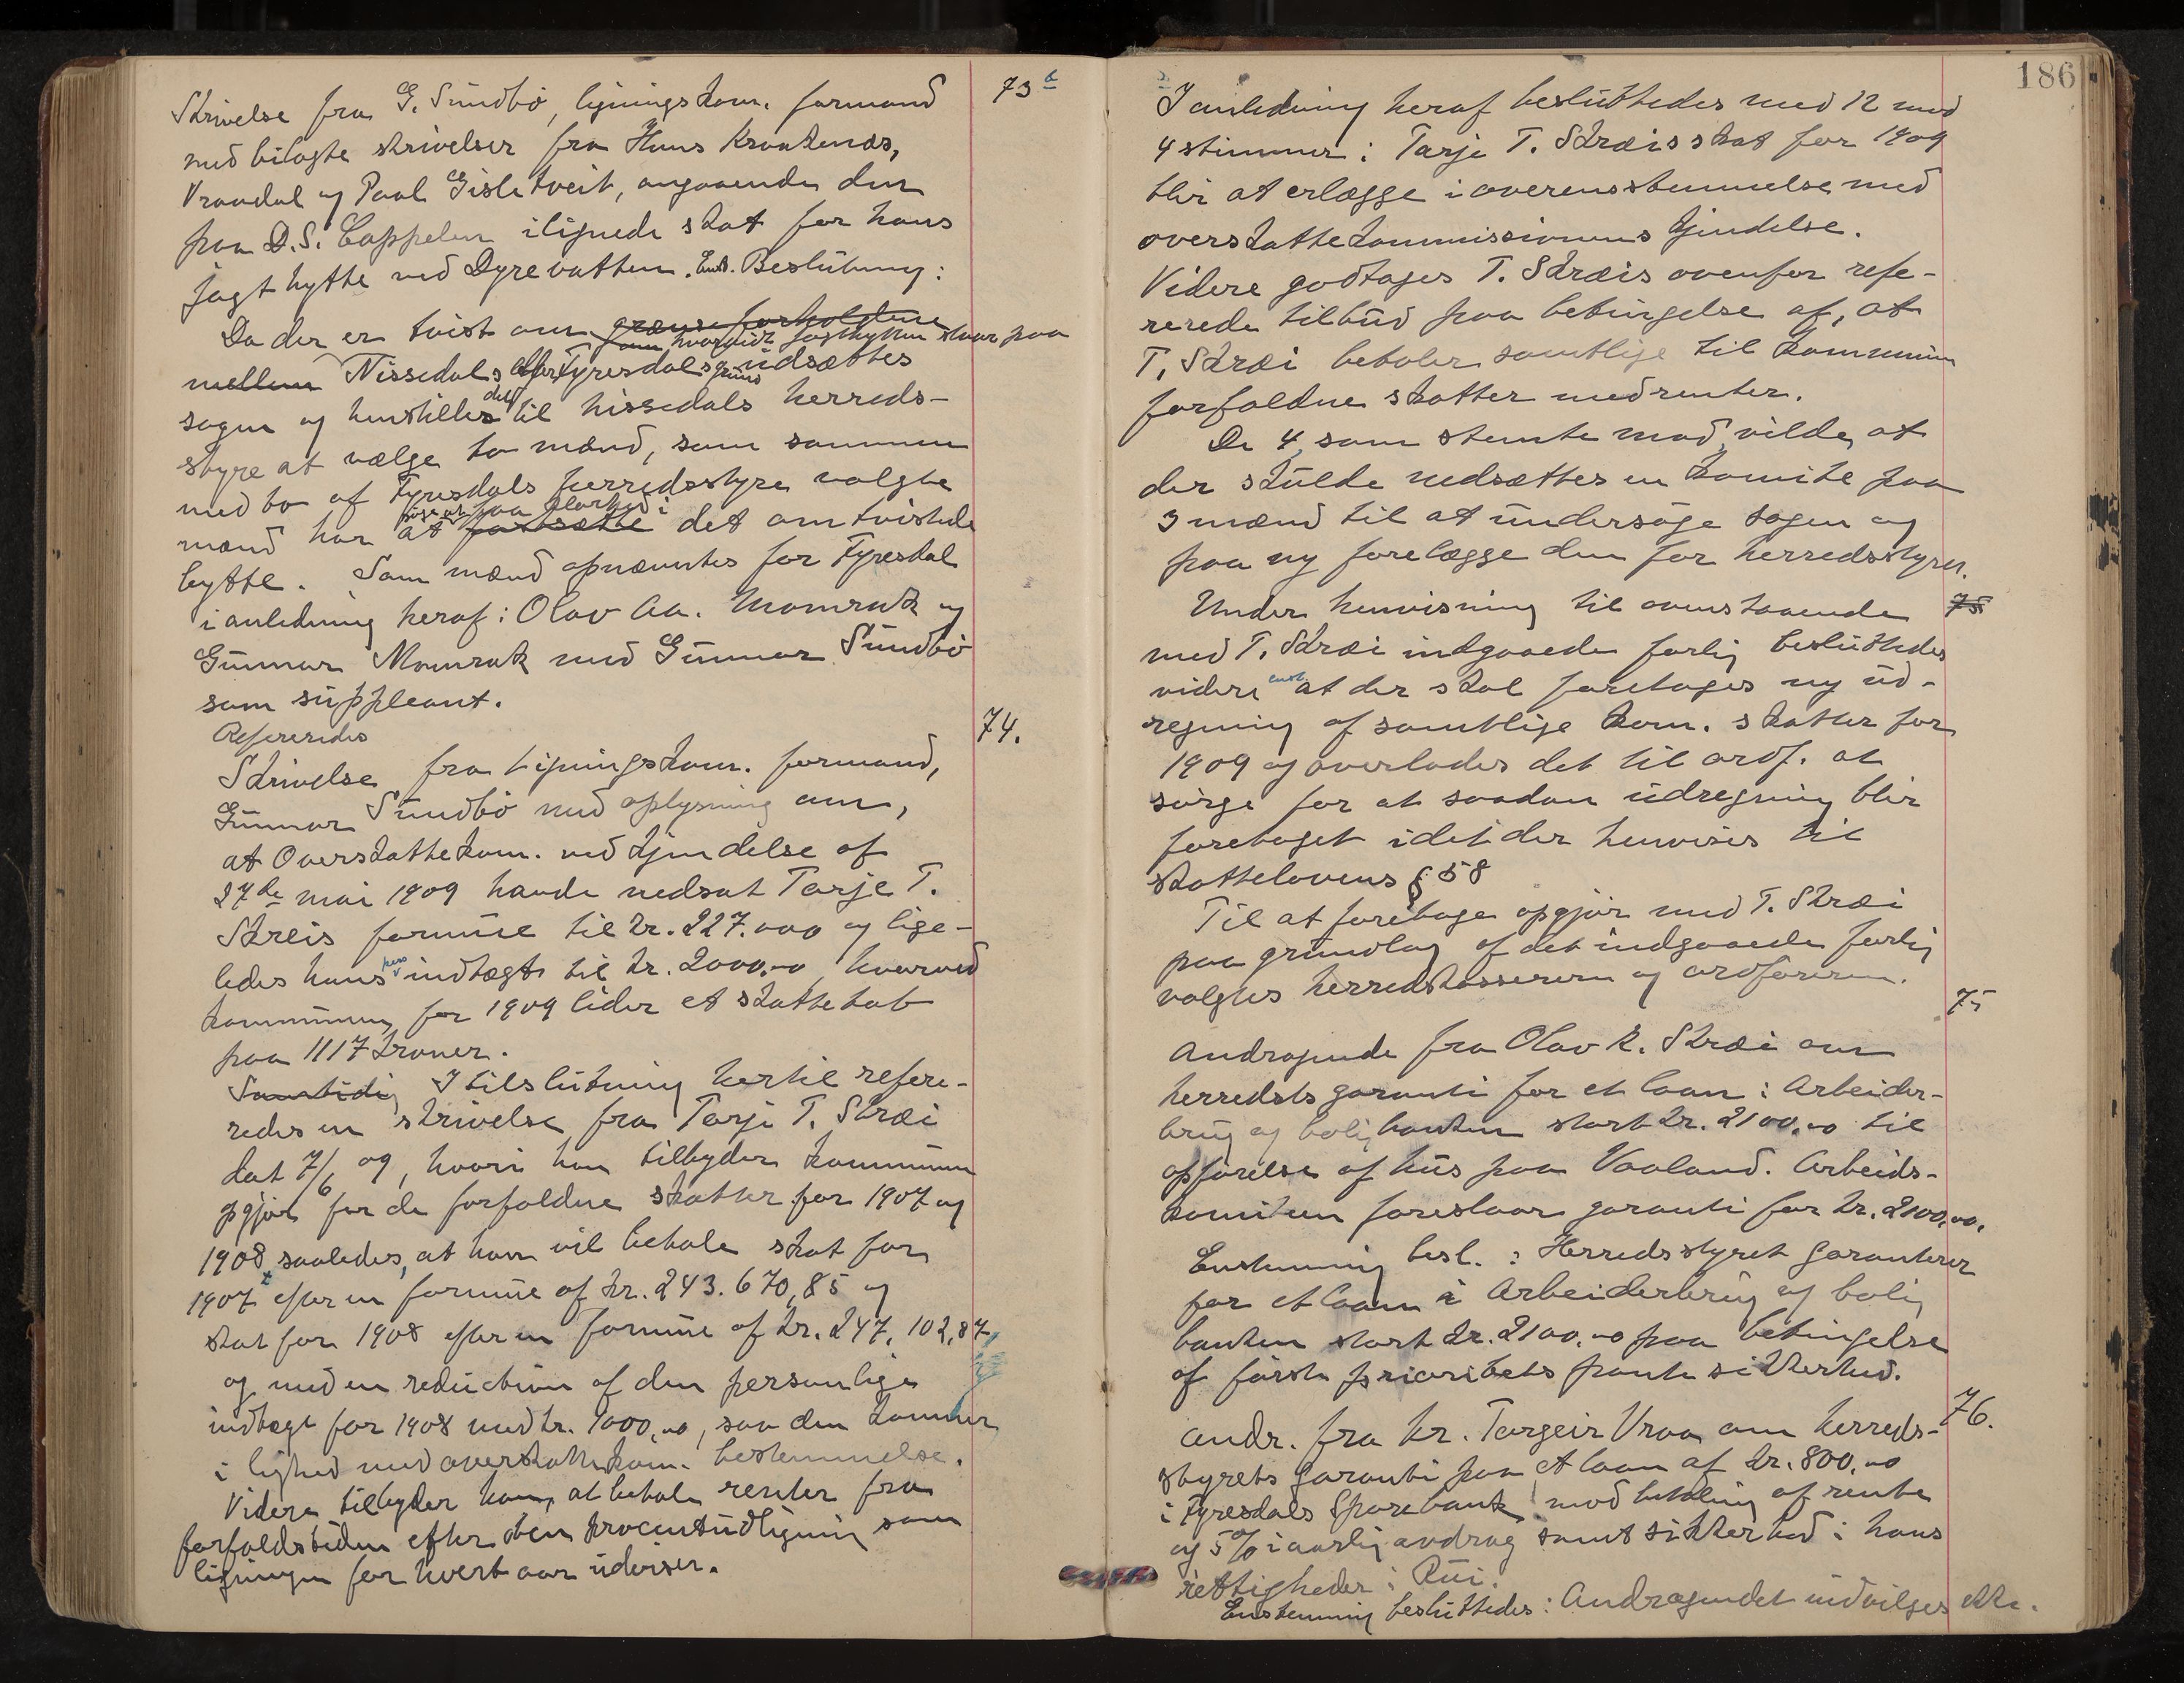 73 b
Skrivelse fra G. Sundbö, ligningskom. formand
med bilagte skrivelser fra Hans Kraakenæs,
Vraadal og Paal Gisletveit, angaaende den
paa D.S. Cappelen ilignede skat for hans
jagthytte ved Dyrevatten. Enst. Beslutning:
Da der er tvist om grænseforholdene
om hvorvidt jagthytten staar paa
mellem Nissedals eller Tyresdals grund udsættes
sagen og henstilles det til Nissedals herreds-
styre at vælge to mænd, som sammen
med to af Fyresdals herredsstyre valgte
mænd har at fortsætte det omtvistede
bytte. Som mænd opnævntes for Fyresdal
i anledning heraf: Olav Aa. Momrak og
Gunnar Momrak med Gunnar Sundbö
som suppleant.
Refereredes
74.
Skrivelse fra ligningskom. formand,
Gunnar Sundbö med oplysning om,
at Overskattekom. ved kjendelse af
27de mai 1909 havde nedsat Tarje T.
Skreis formue til kr. 227.000 og lige-
ledes hans pers indtægt til kr. 2000,00, hvorved
kommunen for 1909 lider et skattetab
paa 1117 kroner.
Samtidig I tilslutning hertil refere-
redes en skrivelse fra Tarje T. Skræi
dat 7/6 09, hvori han tilbyder kommunen
opgjör for de forfaldne skatter for 1907 og
1908 saaledes, at han vil betale skat for
1907 efter en formue af kr. 243.670,85 og
skat for 1908 efter en formue af kr. 247.102,87,
og med en reduction af den personlige
indtægt for 1908 med kr. 1000,00, saa den kommer
i lighed med overskattekom. bestemmelse.
Videre tilbyder han, at betale renter fra
forfaldstiden efter den procentudligning som
ligningen for hvert aar udviser.
186
I anledning heraf besluttedes med 12 mod
4 stimmer: Tarje T. Skræis skat for 1909
blir at erlægge i overensstemmelse med
overskattekommissionens kjendelse.
Videre godtages T. Skræis ovenfor refe-
rerede tilbud paa betingelse af, at
T. Skræi betaler samtlige til kommunen
forfaldne skatter med renter.
De 4 som stemte mod, vilde, at
der skulde nedsættes en komite paa
3 mænd til at undersöge sagen og
paa ny forelægge den for herredsstyret.
75
Under henvisning til ovenstaaende
med T. Skræi indgaaede forlig besluttedes
videre enst. at der skal foretages ny ud-
regning af samtlige kom. skatter for
1909 og overlades det til ordf. at
sörge for at saadan udregning blir
foretaget idet der henvises til
skattelovens § 58
Til at foretage opgjör med T. Skræi
paa grundlag af det indgaaede forlig
valgtes herredskassereren og ordföreren.
75
Andragende fra Olav K. Skræi om
herredets garanti for et laan i Arbeider-
brug og boligbanken stort kr. 2100,00 til
opförelse af hus paa Vaaland. Arbeids-
komiteen foreslaar garanti for kr. 2100,00.
Enstemmig besl.: Herredsstyret garanterer
for et laan i Arbeiderbrug og bolig
banken stort kr. 2100,00 paa betingelse
af förste prioritets pante sikkerhed.
76.
Andr. fra kr. Torgeir Vraa om herreds-
styrets garanti paa et laan af kr. 800,00
i Fyresdals Sparebank mod betaling af rente
og 5% i aarlig avdrag samt sikkerhed i hans
rettigheder i Rui.
Enstemmig besluttedes: Andragendet indvilges ikke.